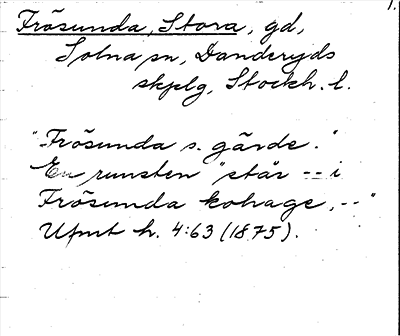 1.
Frösunda, Stora, gd,
Solna sn, Danderyds
skplg, Stockh. l.
"Frösunda s. gärde."
En runsten "står -- i
Frösunda kohage, --"
Ufmt h. 4:63 (1875).